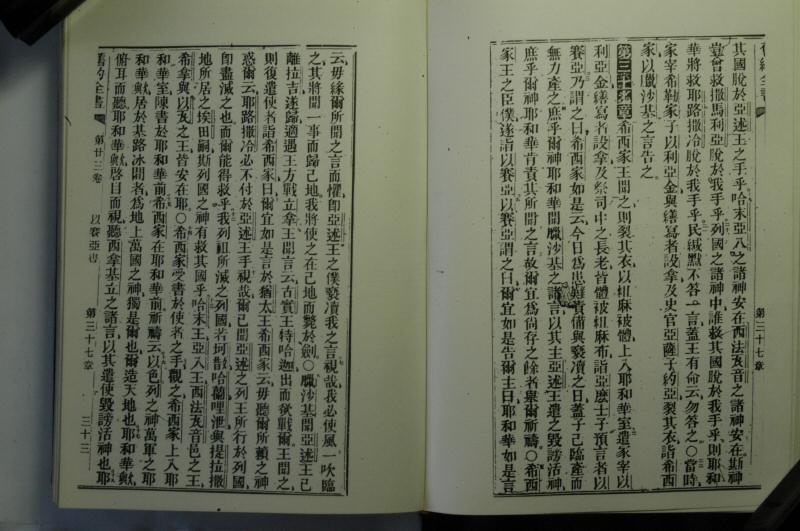 其國脫於亞述王之手乎哈末亞八之諸神安在西法瓦音之諸神安在斯神
豈會救撒馬利亞脫於我手乎列國之諸神中誰救其國脫於我手乎則耶和
華將救耶路撒冷脫於我手乎民緘默不答一言蓋王有命云勿答之○當時
家宰希勒家子以利亞金與繕寫者設拿及史官亞薩子約亞裂其衣詣希西
家以臘沙基之言告之
第三十七章希西家王聞之則裂其衣以粗麻被體上入耶和華室遣家宰以
利亞金繕寫者設拿及祭司中之長老皆體被粗麻布詣亞麼士子預言者以
賽亞乃謂之曰希西家如是云今日為患難責備與褻瀆之日蓋子已臨產而
無力產之庶乎爾神耶和華聞臘沙基之諸言以其主亞述王遣之毀謗活神
庶乎爾神耶和華肯責其所聞之言故爾宜為尚存之餘者舉爾祈禱○希西
家王之臣僕遂詣以賽亞以賽亞謂之曰爾宜如是告爾主曰耶和華如是言
第三十七章
云毋緣爾所聞之言而懼即亞述王之僕褻瀆我之言視哉我必使風一吹臨
之其將聞一事而歸己地我將使之在己地而斃於劍○臘沙基聞亞述王已
離拉吉遂歸適遇王方戰立拿王聞言云古實王特哈迦出而攻戰爾王聞之
則復遣使者詣希西家曰爾宜如是言於猶太王希西家云毋聽爾所賴之神
惑爾云耶路撒冷必不付於亞述王手視哉爾已聞亞述之列王所行於列國
即盡滅之也而爾能得救乎我列祖所滅之列國若坷散哈蘭哩泄與提拉撒
地所居之埃田嗣斯列國之神有救其國乎哈末王亞八王西法瓦音邑之王
希拿與以瓦之王昔安在耶○希西家受書於使者之手觀之希西家上入耶
和華室陳書於耶和華前希西家在耶和華前祈禱云以色列之神萬軍之耶
和華歟居於基路冰間者為地上萬國之神獨是爾也爾造天地也耶和華歟
俯耳而聽耶和華歟啓目而視聽西拿基立之諸言以其遣使毀謗活神也耶
舊約全書
第廿三卷
以賽亞書
第三十七章
三十三